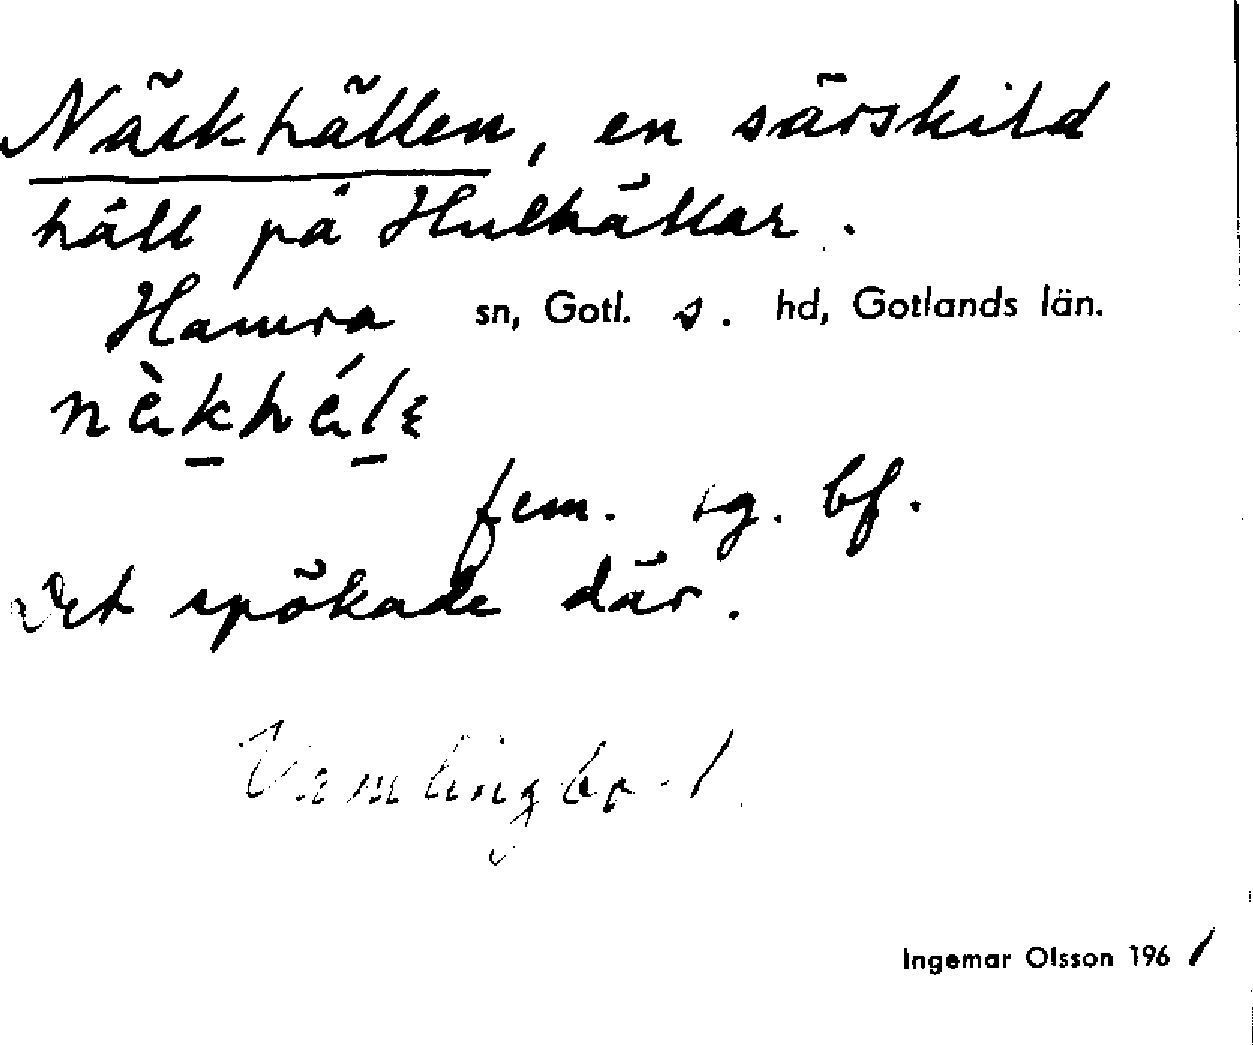 Näckhällen, en särskild
häll på Hulhällar.
Hamra sn, Gotl. s. hd, Gotlands län.
nàkhálɛ
fem. sg. bf.
Det spökade där.
Vamlingbo - 1
Ingemar Olsson 1961